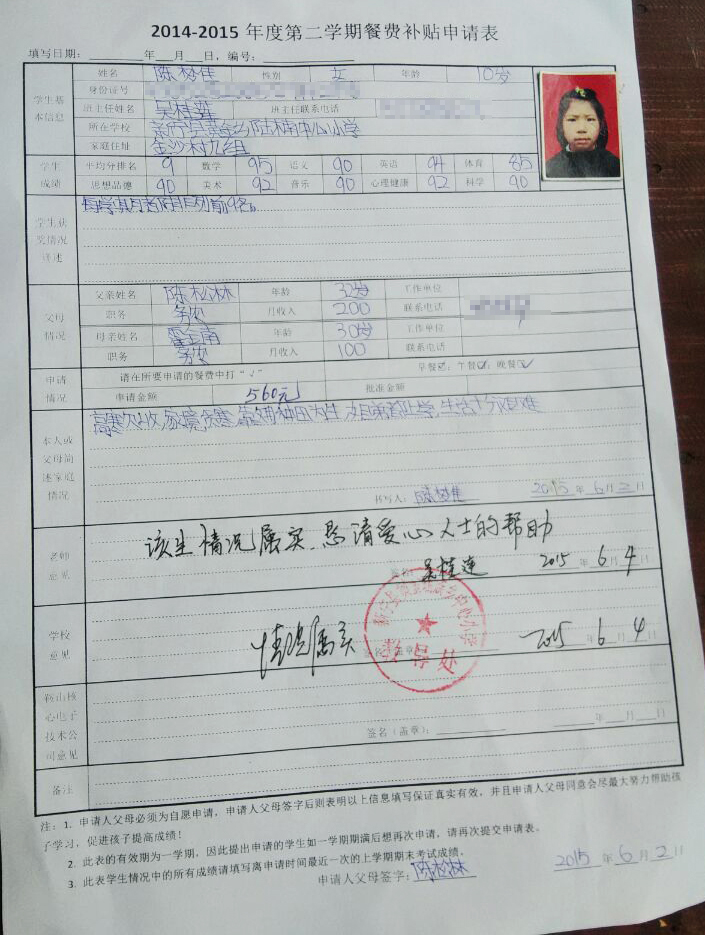 2014-2015 年度第二学期餐费补贴申请表
填写日期： 年 月 日，编号：
学生基本信息
姓名 陈 佳 性别 女 年龄 10岁
身份证号
班主任姓名 吴桂莲 班主任联系电话
所在学校 中心小学
家庭住址 金沙村九组
学生成绩
平均分排名 9 数学 95 语文 90 英语 94 体育 85
思想品德 90 美术 92 音乐 90 心理健康 92 科学 90
学生获奖情况详述
每学期考试排名前9名。
父母情况
父亲姓名 陈松林 年龄 32岁 工作单位
职务 务农 月收入 200 联系电话
母亲姓名 年龄 30岁 工作单位
职务 务农 月收入 100 联系电话
申请情况
请在所要申请的餐费中打“√” 早餐☑；午餐☑；晚餐☑
申请金额 560元 批准金额
本人或父母简述家庭情况
高寒 家境贫寒 种田为生 上学，生活十分困难
书写人： 2015 年 6 月 2 日
老师意见
该生情况属实，恳请爱心人士的帮助
吴桂莲 2015 6 4
学校意见
情况属实
中心小学
教导处
2015 年 6 月 4 日
鞍山核心电子技术公司意见
签名（盖章）： 年 月 日
备注
注：1. 申请人父母必须为自愿申请，申请人父母签字后则表明以上信息填写保证真实有效，并且申请人父母同意会尽最大努力帮助孩
子学习，促进孩子提高成绩！
2. 此表的有效期为一学期，因此提出申请的学生如一学期期满后想再次申请，请再次提交申请表。
3. 此表学生情况中的所有成绩请填写离申请时间最近一次的上学期期末考试成绩。
申请人父母签字：陈松林 2015 年 6 月 2 日